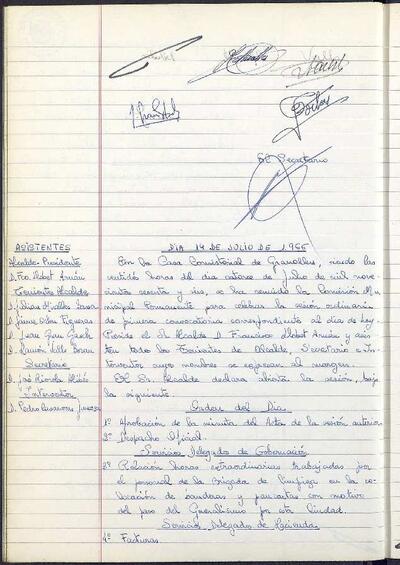 El Secretario
ASISTENTES
Alcalde-Presidente
D. Fco. Llobet Arnán
Tenientes Alcalde
D. Jaime
D. Juan
D. Ramón
Secretario
D. José
Interventor
D. Pedro
DIA 14 DE JULIO DE 1966
En la Casa Consistorial de Granollers, siendo las
veintidós horas del día catorce de Julio de mil nove-
cientos sesenta y seis, se ha reunido la Comisión Mu-
nicipal Permanente para celebrar la sesión ordinaria
de primera convocatoria correspondiente al día de hoy.
Preside el Sr. Alcalde D. Francisco Llobet Arnán y asis-
ten todos los Tenientes de Alcalde, Secretario e In-
terventor cuyos nombres se expresan al margen.
El Sr. Alcalde declara abierta la sesión, bajo
la siguiente.
Orden del Dia
1º Aprobación de la minuta del Acta de la sesión anterior
2º Despacho Oficial.
Servicio Delegado de Gobernación
Relación horas extraordinarias trabajadas por
el personal de la Brigada de limpieza en la co-
locación de banderas y pancartas con motivo
del paso del Generalísimo por esta Ciudad.
Servicio Delegado de Hacienda
4º Facturas.